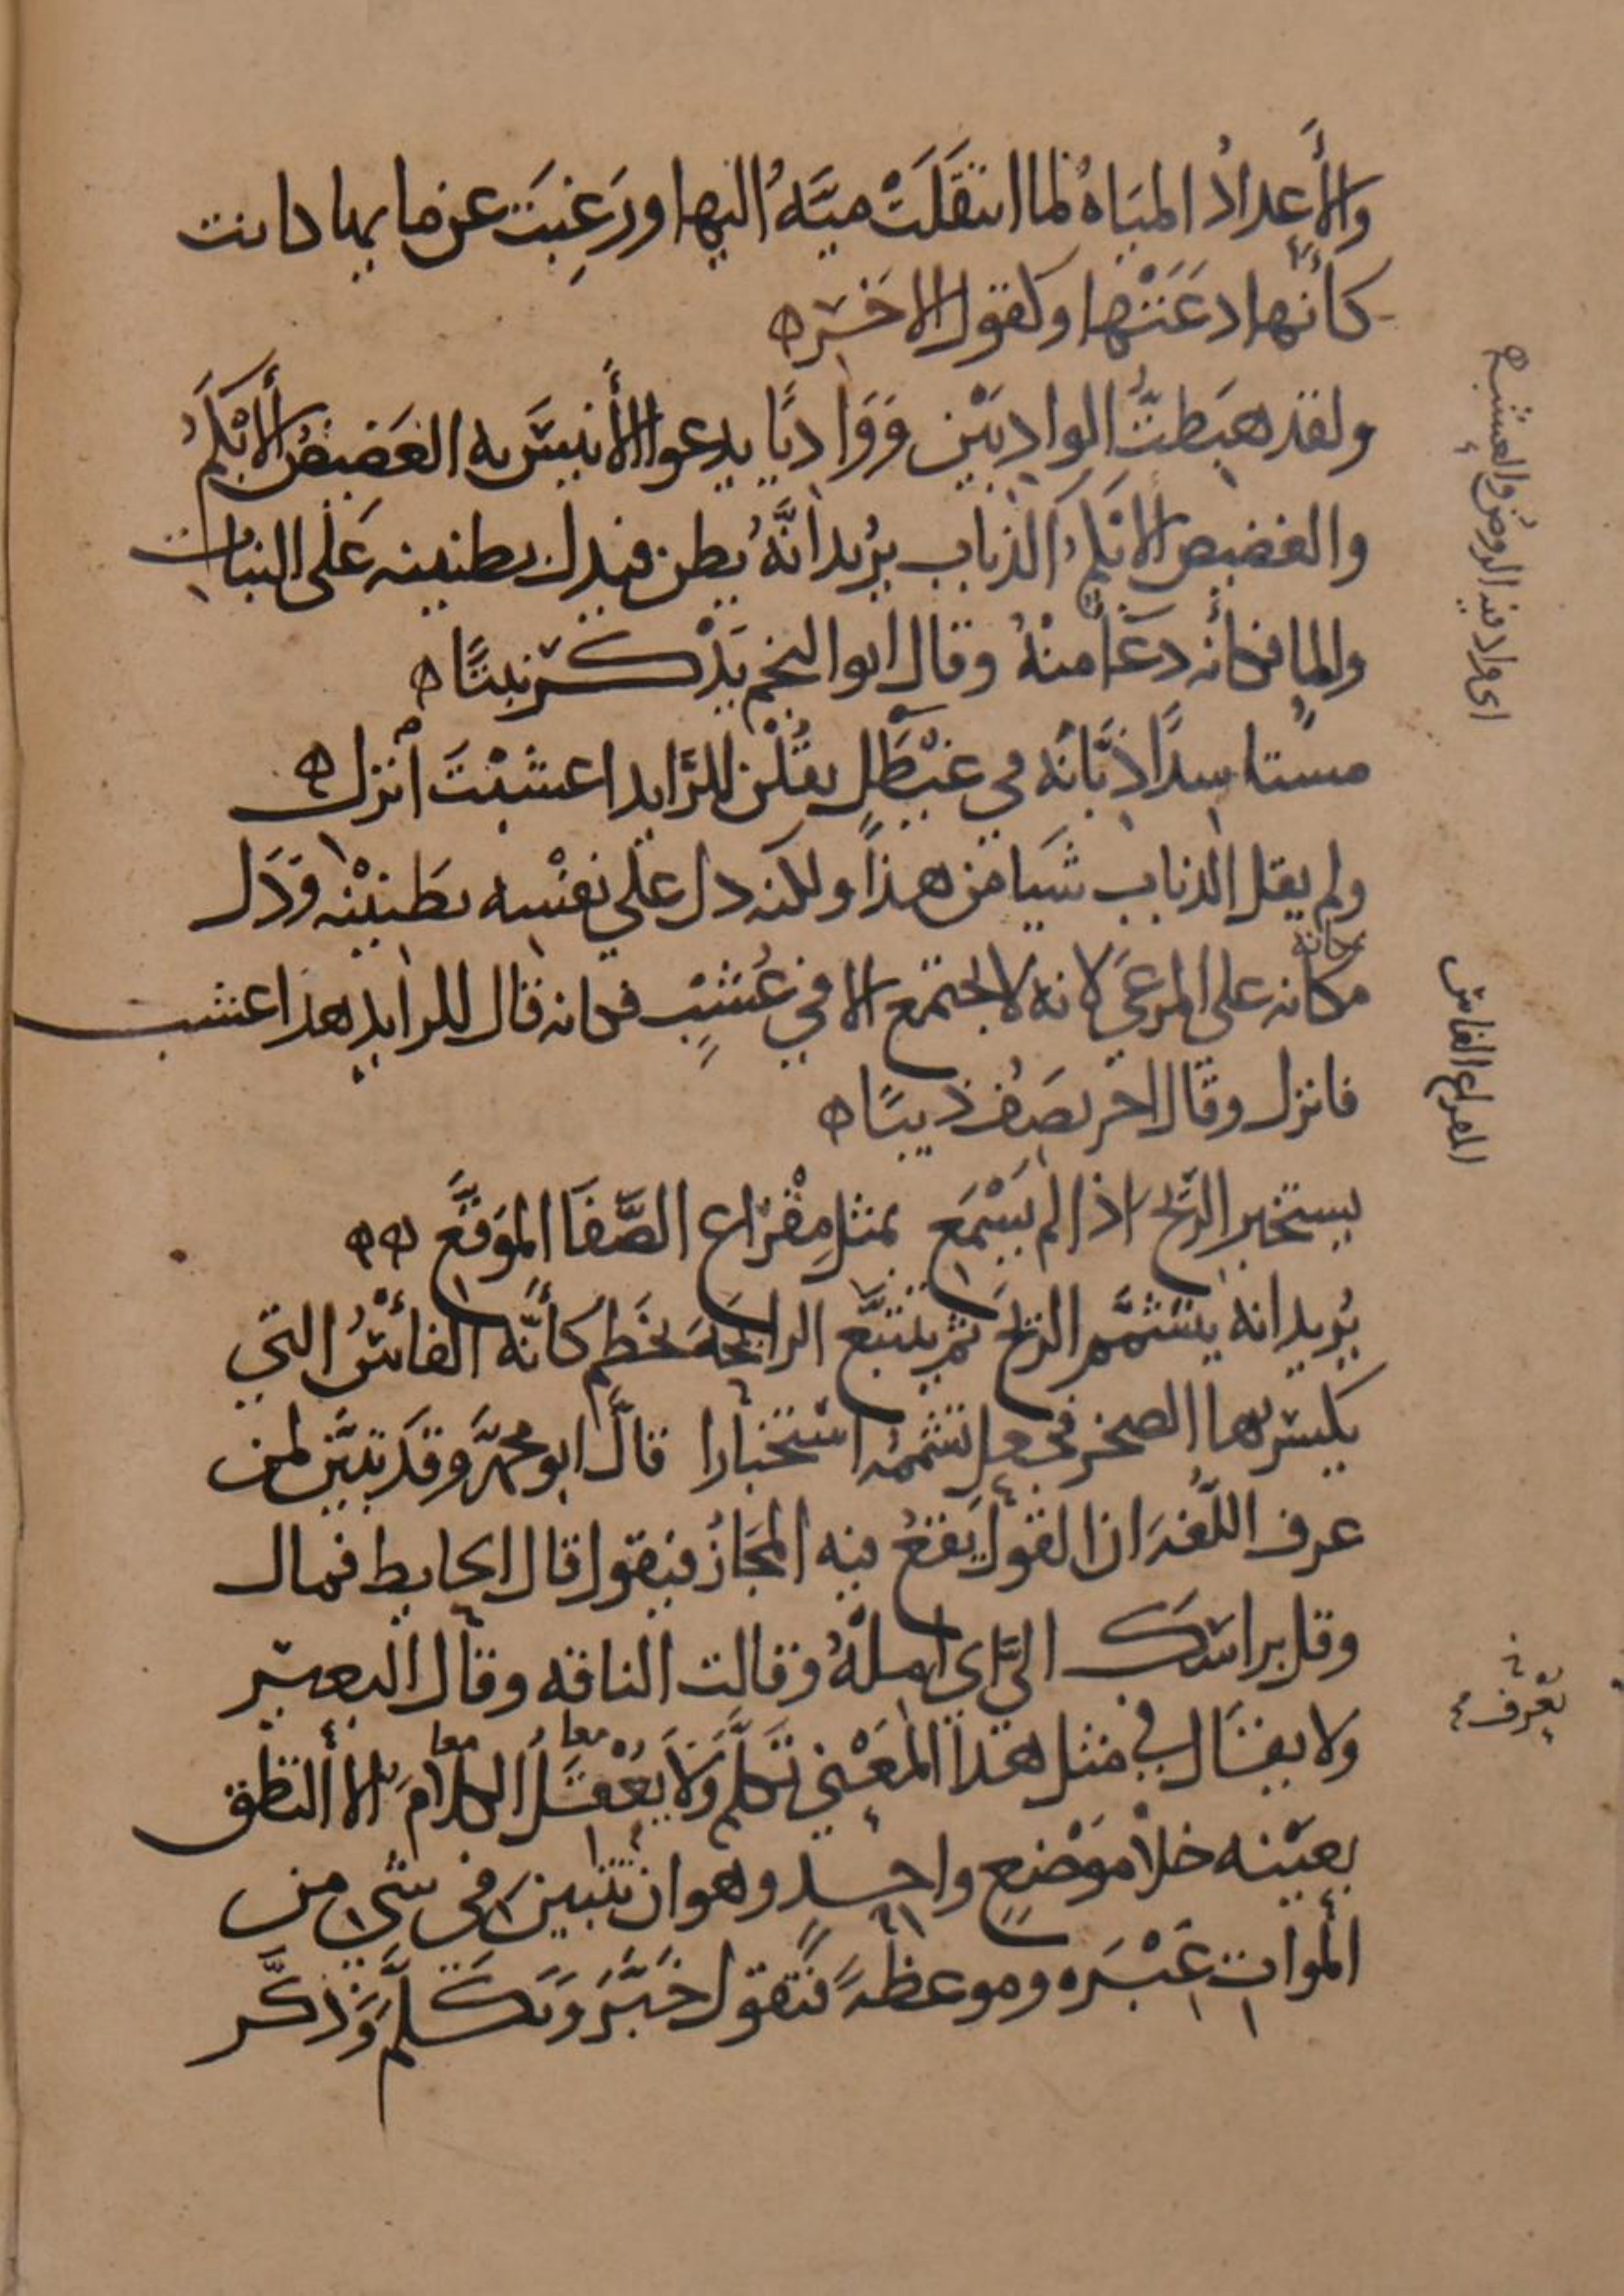 والأعدادُ المياهُ لما انتقلَتْ ميَّهُ اليها ورَغِبَت عن مايها كانت
كأنها دعَتْها وكقول الاخر ه
ولقد هبَطتُ الواديَيْن ووَاديًا يدعوا الأنيسَ به الغَضيضُ الأبْكَمُ
والغضيض الابكم الذباب يريد انَّهُ يطن فيدل بطنينه عَلى النبات
والما فكانه دعَا منْهُ وقال ابو النجم يذْكر نبتًا ه
مستاسدًا ذبَّانه في غيْطَلٍ يقُلْن للرَّايد اعشبْتَ انزل ه
ولم يقل الذباب شيا من هذا ولكنه دل على نفْسه بطَنيْنه ودَل
مكانه على المرعَى لانه لا يجتمع الا في عُشْبٍ فكانه قال للرايد هذا عشب
فانزل وقال اخر يصَف ذيبًا ه
يستخبر الريح اذا لم يَسْمَع بمثل مِقْرَاع الصَّفَا الموَقَّع ه ه
يُريد انه يتشمَّم الريح ثم يتتبَّع الرايحَة بخَطم كأنَّه الفأسُ التي
يكسر بها الصخر فجعل تشممه استخبارا قالَ ابو محمَّد وقد تبيَّن لمن
عرف اللُّغة ان القولَ يقعُ فيه المجَازُ فيقول قال الحايط فمال
وقل براسك اليَّ اي امله وقالت الناقه وقال البعير
ولا يقَال في مثل هذا المعْنى تكلَّم ولا يُعْقَلُ الكلامُ الا النطق
بعيْنه خلا موْضعٍ واحدٍ وهو ان تتبين في شيء من
الموات عبْرَه وموعظةً فتقول خبَّرَ وتكلَّمَ وَذكَّر
اى واد فيه الروض والعشب ه
المقراع الفاس
يعْرف